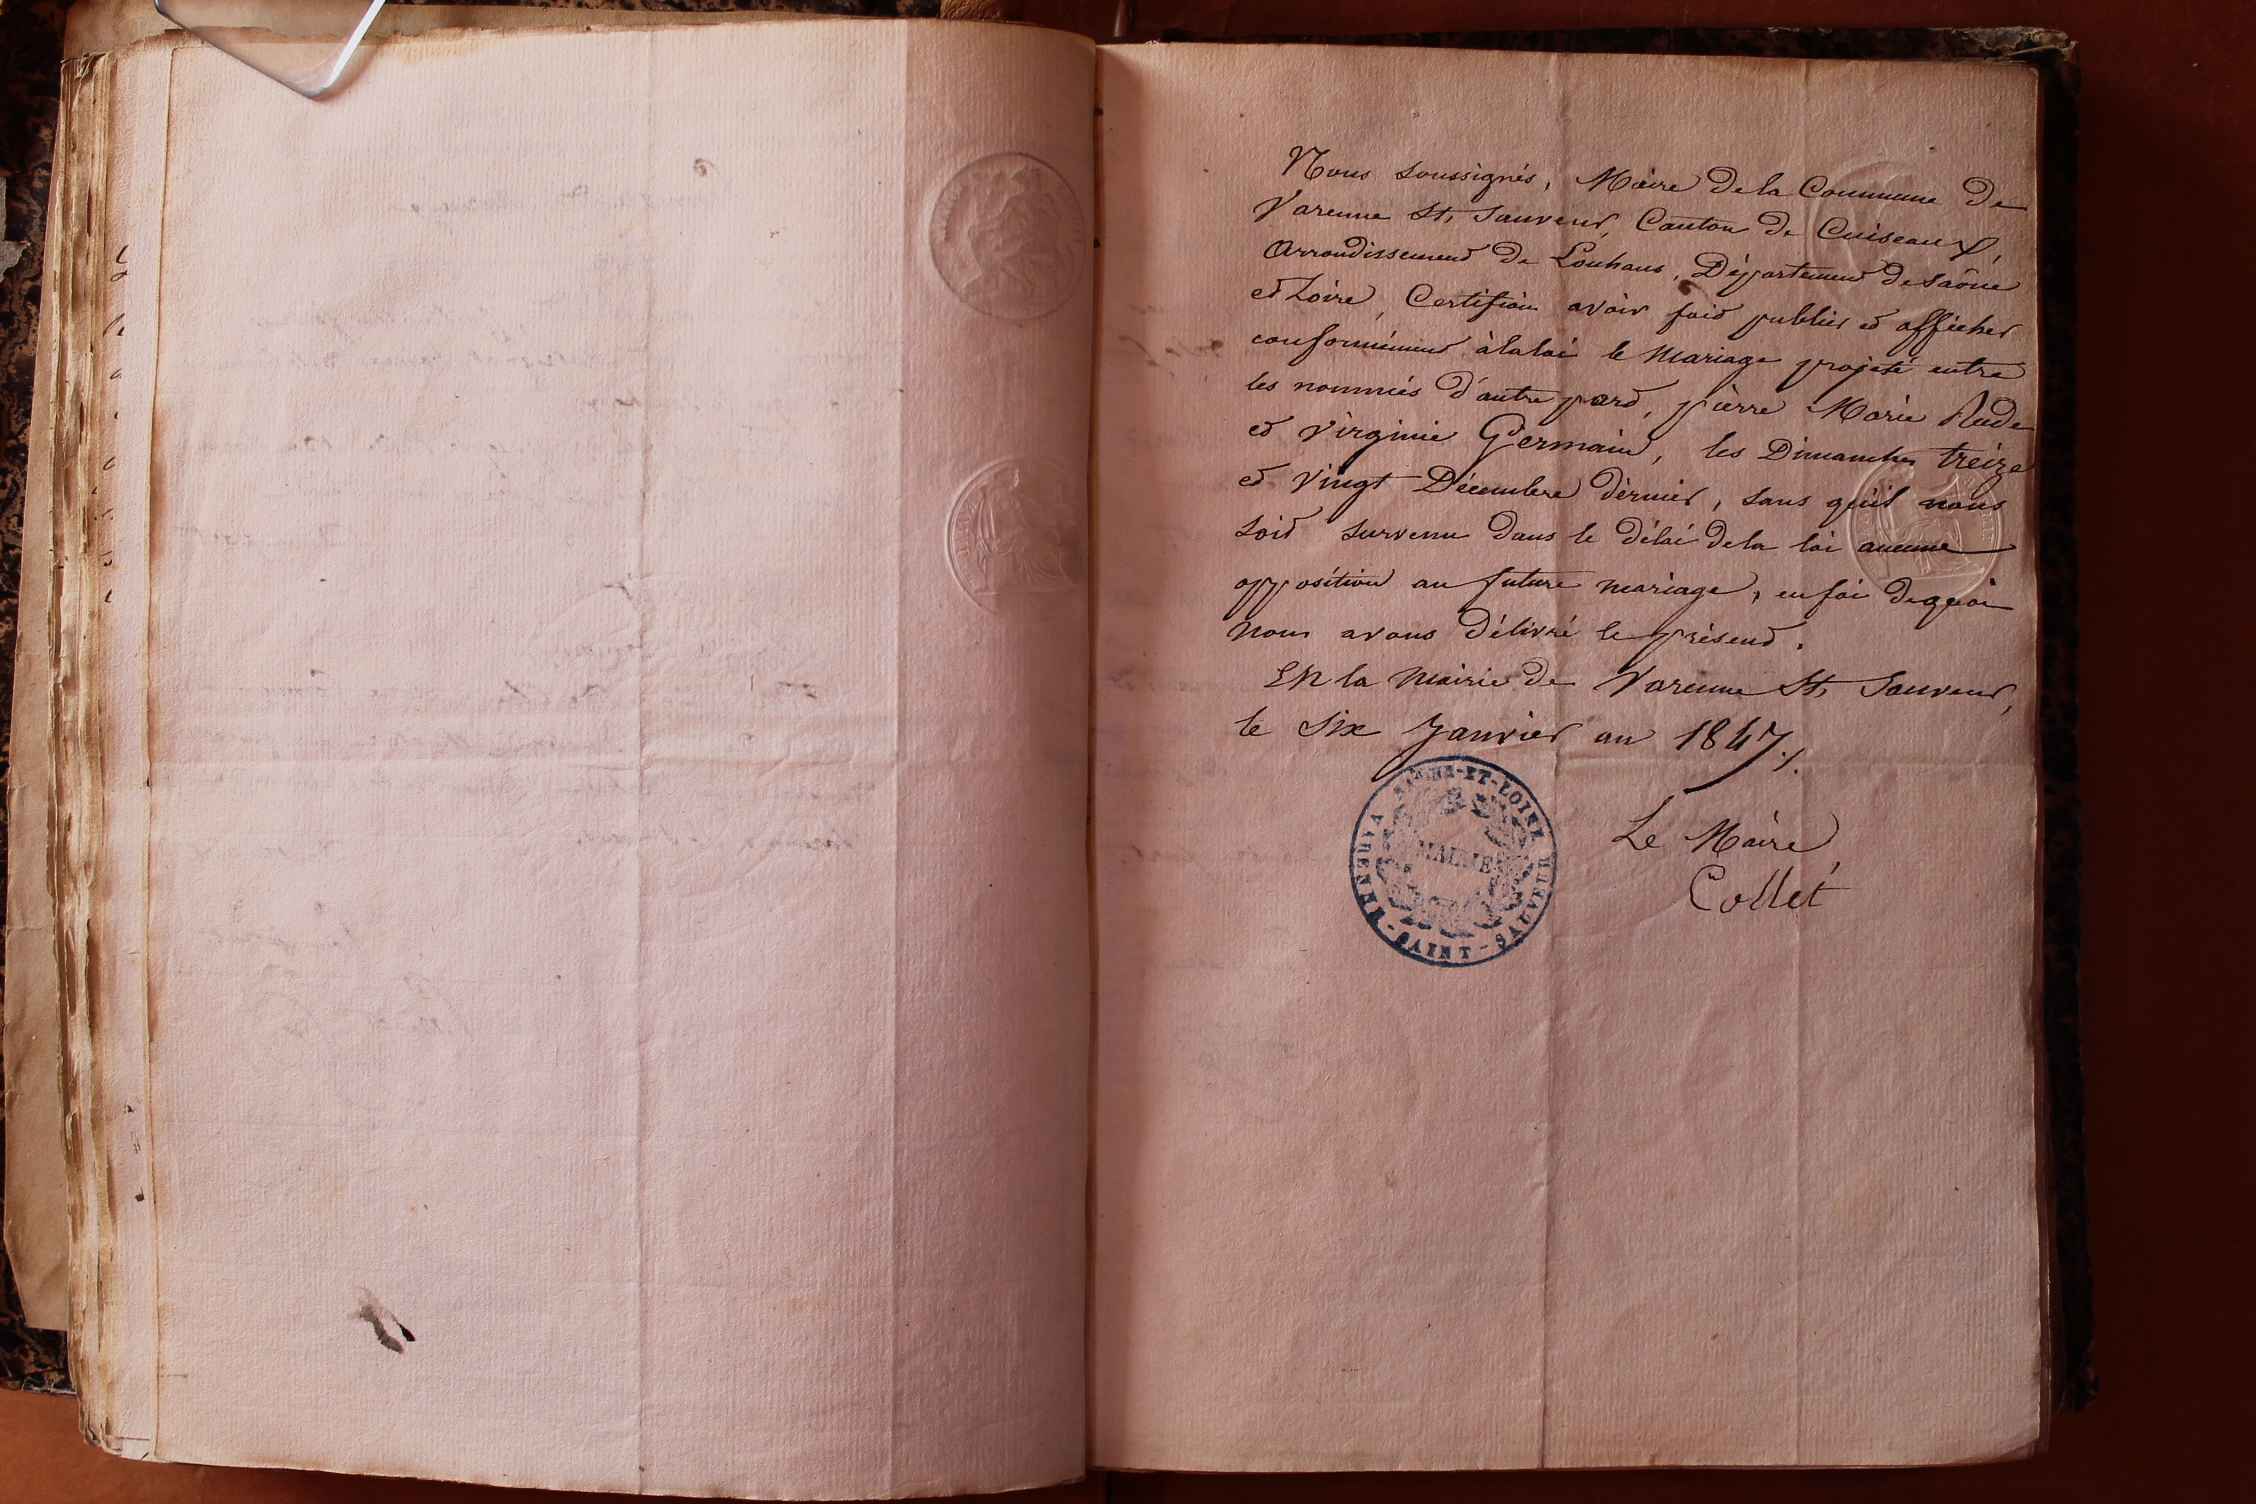 Nous soussignés, Maire de la Commune de
Varenne St, Sauveur, Canton de Cuiseaux,
Arrondissement de Louhans, Département de Saône
et Loire, Certifions avoir fait publier et afficher
conformément à la loi le mariage projeté entre
les nommés d'autre part, pierre Marie Rude
et Virginie Germain, les Dimanches treize
et vingt Décembre dernier, sans qu'il nous
soit survenu dans le délai de la loi aucune
opposition au future mariage, en foi de quoi
nous avons délivré le présent.
EN la Mairie de Varenne St, Sauveur,
le six Janvier an 1847./.
SAÔNE-ET-LOIRE
MAIRIE
VARENNE-SAINT-SAUVEUR
Le Maire,
Collet